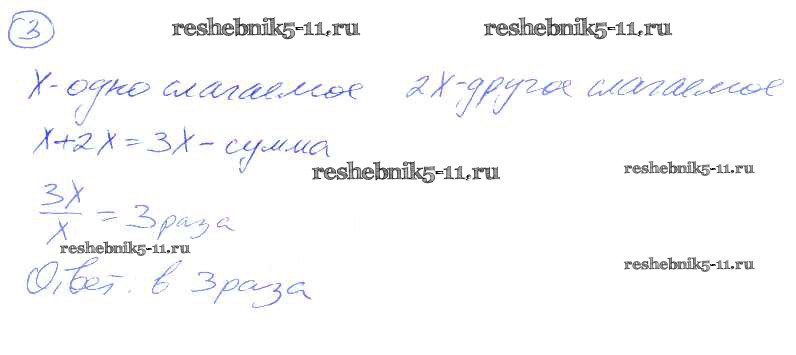 3 reshebnik5-11.ru reshebnik5-11.ru
X-одно слагаемое 2X-другое слагаемое
X+2X=3X-сумма
reshebnik5-11.ru reshebnik5-11.ru
3X/X = 3 раза
reshebnik5-11.ru
reshebnik5-11.ru
Ответ. в 3 раза